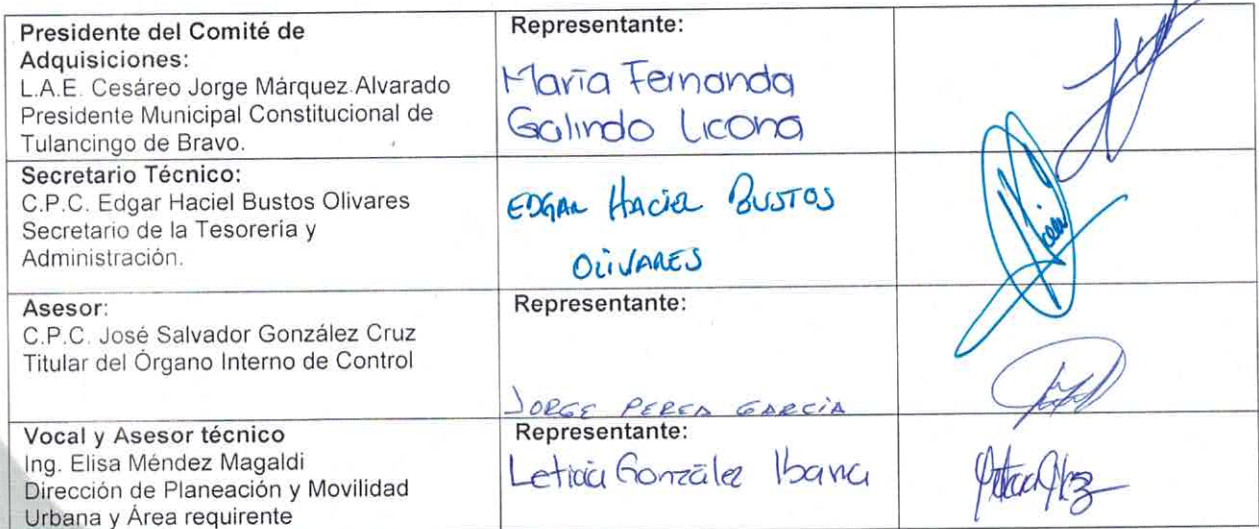 Presidente del Comité de
Adquisiciones:
L.A.E. Cesáreo Jorge Márquez Alvarado
Presidente Municipal Constitucional de
Tulancingo de Bravo.
Representante:
María Fernanda
Galindo Licona
Secretario Técnico:
C.P.C. Edgar Haciel Bustos Olivares
Secretario de la Tesorería y
Administración.
EDGAR HACIEL BUSTOS
OLIVARES
Asesor:
C.P.C. José Salvador González Cruz
Titular del Órgano Interno de Control
Representante:
JORGE PEREA GARCÍA
Vocal y Asesor técnico
Ing. Elisa Méndez Magaldi
Dirección de Planeación y Movilidad
Urbana y Área requirente
Representante:
Leticia González Ibarra